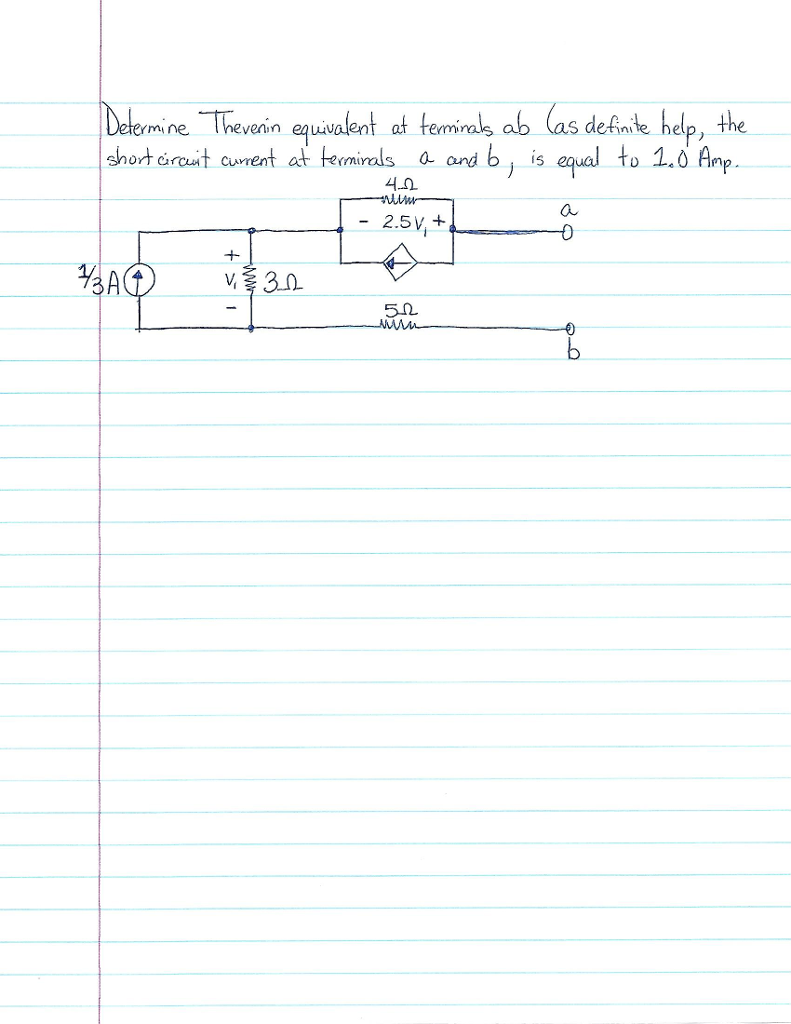 Determine Thevenin equivalent at terminals ab (as definite help, the
short circuit current at terminals a and b, is equal to 1.0 Amp.
4Ω
- 2.5V₁ +
a
+
1/3A V₁ 3Ω
-
5Ω
b